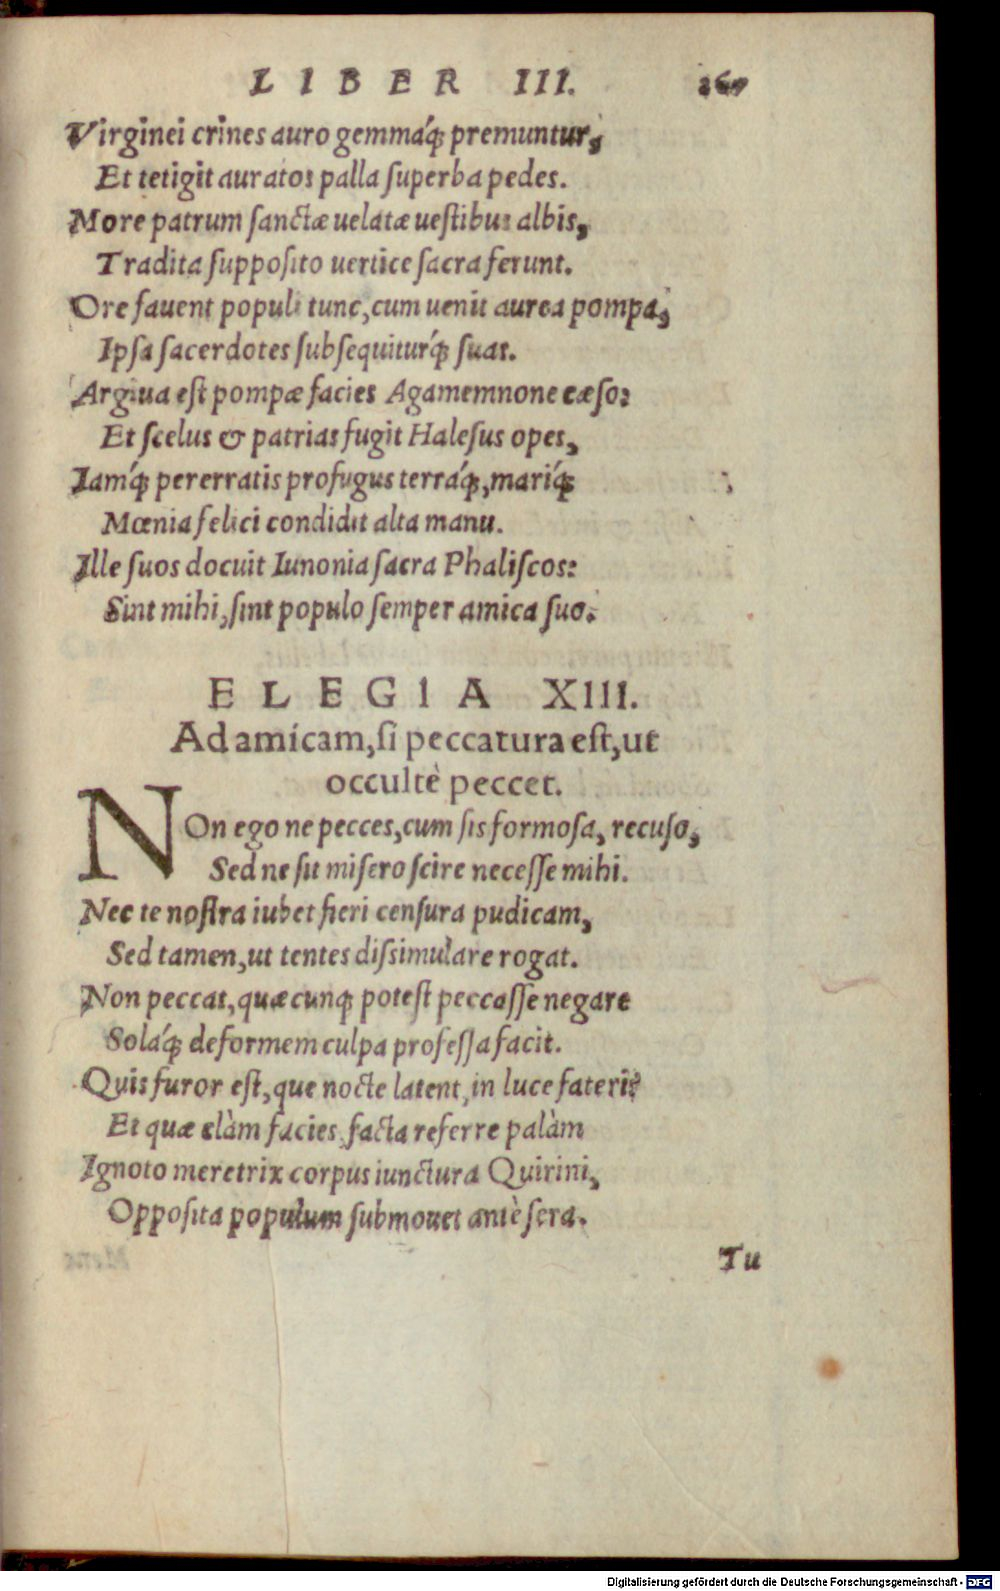 LIBER III. 267
Virginei crines auro gemmáq́; premuntur,
Et tetigit auratos palla ſuperba pedes.
More patrum ſanctæ uelatæ ueſtibus albis,
Tradita ſuppoſito uertice ſacra ferunt.
Ore fauent populi tunc, cum uenit aurea pompa,
Ipſa ſacerdotes ſubſequiturq́; ſuas.
Argiua eſt pompæ facies Agamemnone cæſo:
Et ſcelus & patrias fugit Haleſus opes,
Iamq́; pererratis profugus terráq́;, mariq́;
Mœnia felici condidit alta manu.
Ille ſuos docuit Iunonia ſacra Phaliſcos:
Sint mihi, ſint populo ſemper amica ſuo.
ELEGIA XIII.
Ad amicam, ſi peccatura eſt, ut
occultè peccet.
NOn ego ne pecces, cum ſis formoſa, recuſo,
Sed ne ſit miſero ſcire neceſſe mihi.
Nec te noſtra iubet fieri cenſura pudicam,
Sed tamen, ut tentes diſsimulare rogat.
Non peccat, quæcunq; poteſt peccaſſe negare
Soláq́; deformem culpa profeſſa facit.
Quis furor eſt, que nocte latent, in luce fateri?
Et quæ clàm facies facta referre palàm
Ignoto meretrix corpus iunctura Quirini,
Oppoſita populum ſubmouet antè ſera.
Tu
Digitalisierung gefördert durch die Deutsche Forschungsgemeinschaft - DFG